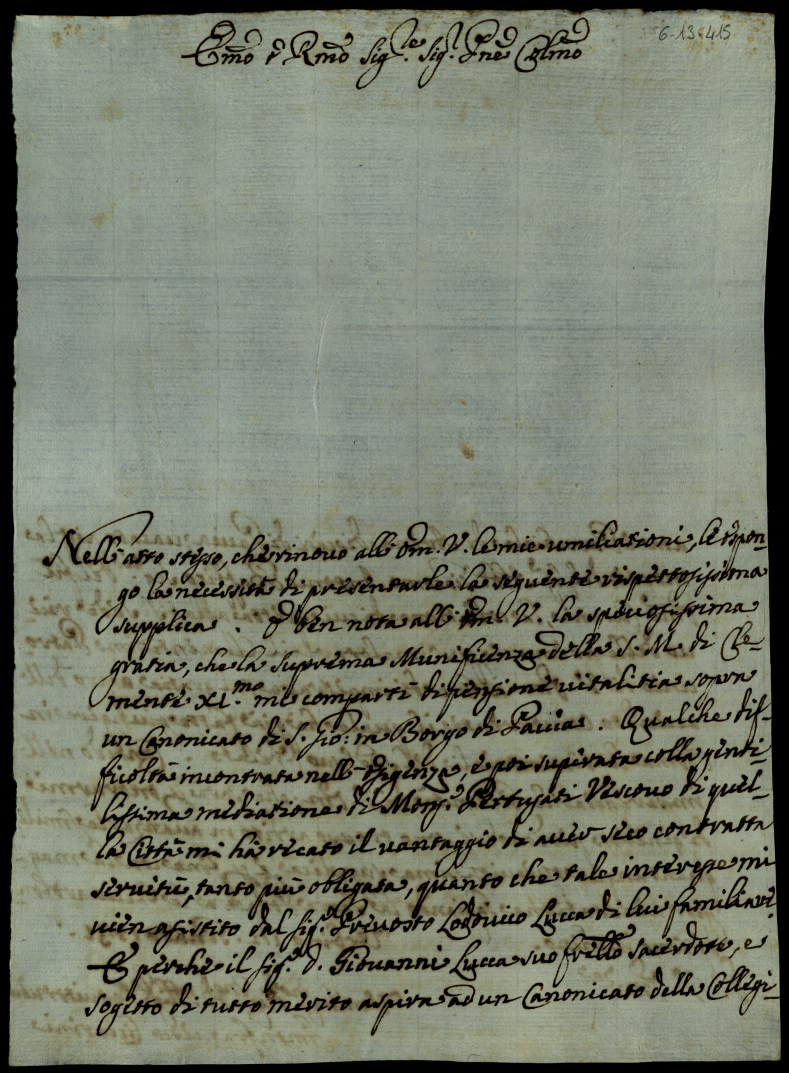 6-13-415
Emo e Rmo Sig.re Sig.r Pne Colmo
Nell'atto stesso, che rinovo all'Em. V. le mie umiliationi, le espon-
go la necessità di presentarle la seguente rispettosissima
supplica. È ben nota all'Em. V. la speciosissima
gratia, che la suprema Munificenza della S. M. di Cle-
mente XI.mo mi compartì di pensione vitalitia sopra
un Canonicato di S. Gio: in Borgo di Pavia. Qualche dif-
ficoltà incontrata nell'esigenza, e poi superata colla genti-
lissima mediatione di Mons.r Pertusati Vescovo di quel-
la Città mi hà recato il vantaggio di aver seco contratta
servitù, tanto più obligata, quanto che tale interesse mi
vien assistito dal Sig.r Prevosto Lodovico Lucca di lui familiare.
E perche il Sig.r D. Giovanni Lucca suo frello sacerdote, e
sogetto di tutto merito aspira ad un Canonicato della Collegi-